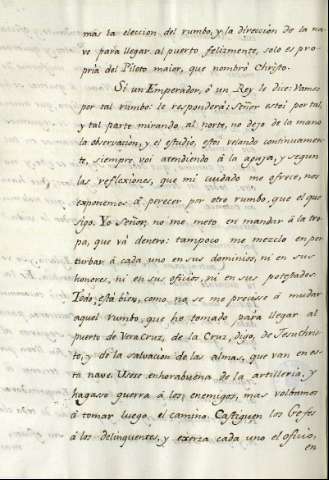 mas la eleccion del rumbo, y la direccion de la na-
ve para llegar al puerto felizmente, solo es pro-
pria del Piloto maior, que nombró Christo.
Si un Emperador, ó un Rey le dice: Vamos
por tal rumbo: le responderá: Señor estoi por tal,
y tal parte mirando al norte, no dejo de la mano
la observacion, y el estudio, estoi velando continuamen-
te, siempre voi atendiendo á la aguja, y segun
las reflexiones, que mi cuidado me ofrece, nos
exponemos á perecer por otro rumbo, que el que
sigo. Yo Señor, no me meto en mandar á la tro-
pa, que vá dentro: tampoco me mezclo en per-
turbar á cada uno en sus dominios, ni en sus
honores, ni en sus oficios, ni en sus potestades.
Todo está bien, como no se me precise á mudar
aquel rumbo, que he tomado para llegar al
puerto de Vera Cruz, de la Cruz, digo, de Jesu Chris-
to, y de la salvacion de las almas, que van en es-
ta nave. Usese enhorabuena de la artilleria, y
hagase guerra á los enemigos, mas volvamos
á tomar luego el camino. Castiguen los Gefes
á los delinquentes, y exerza cada uno el oficio,
en